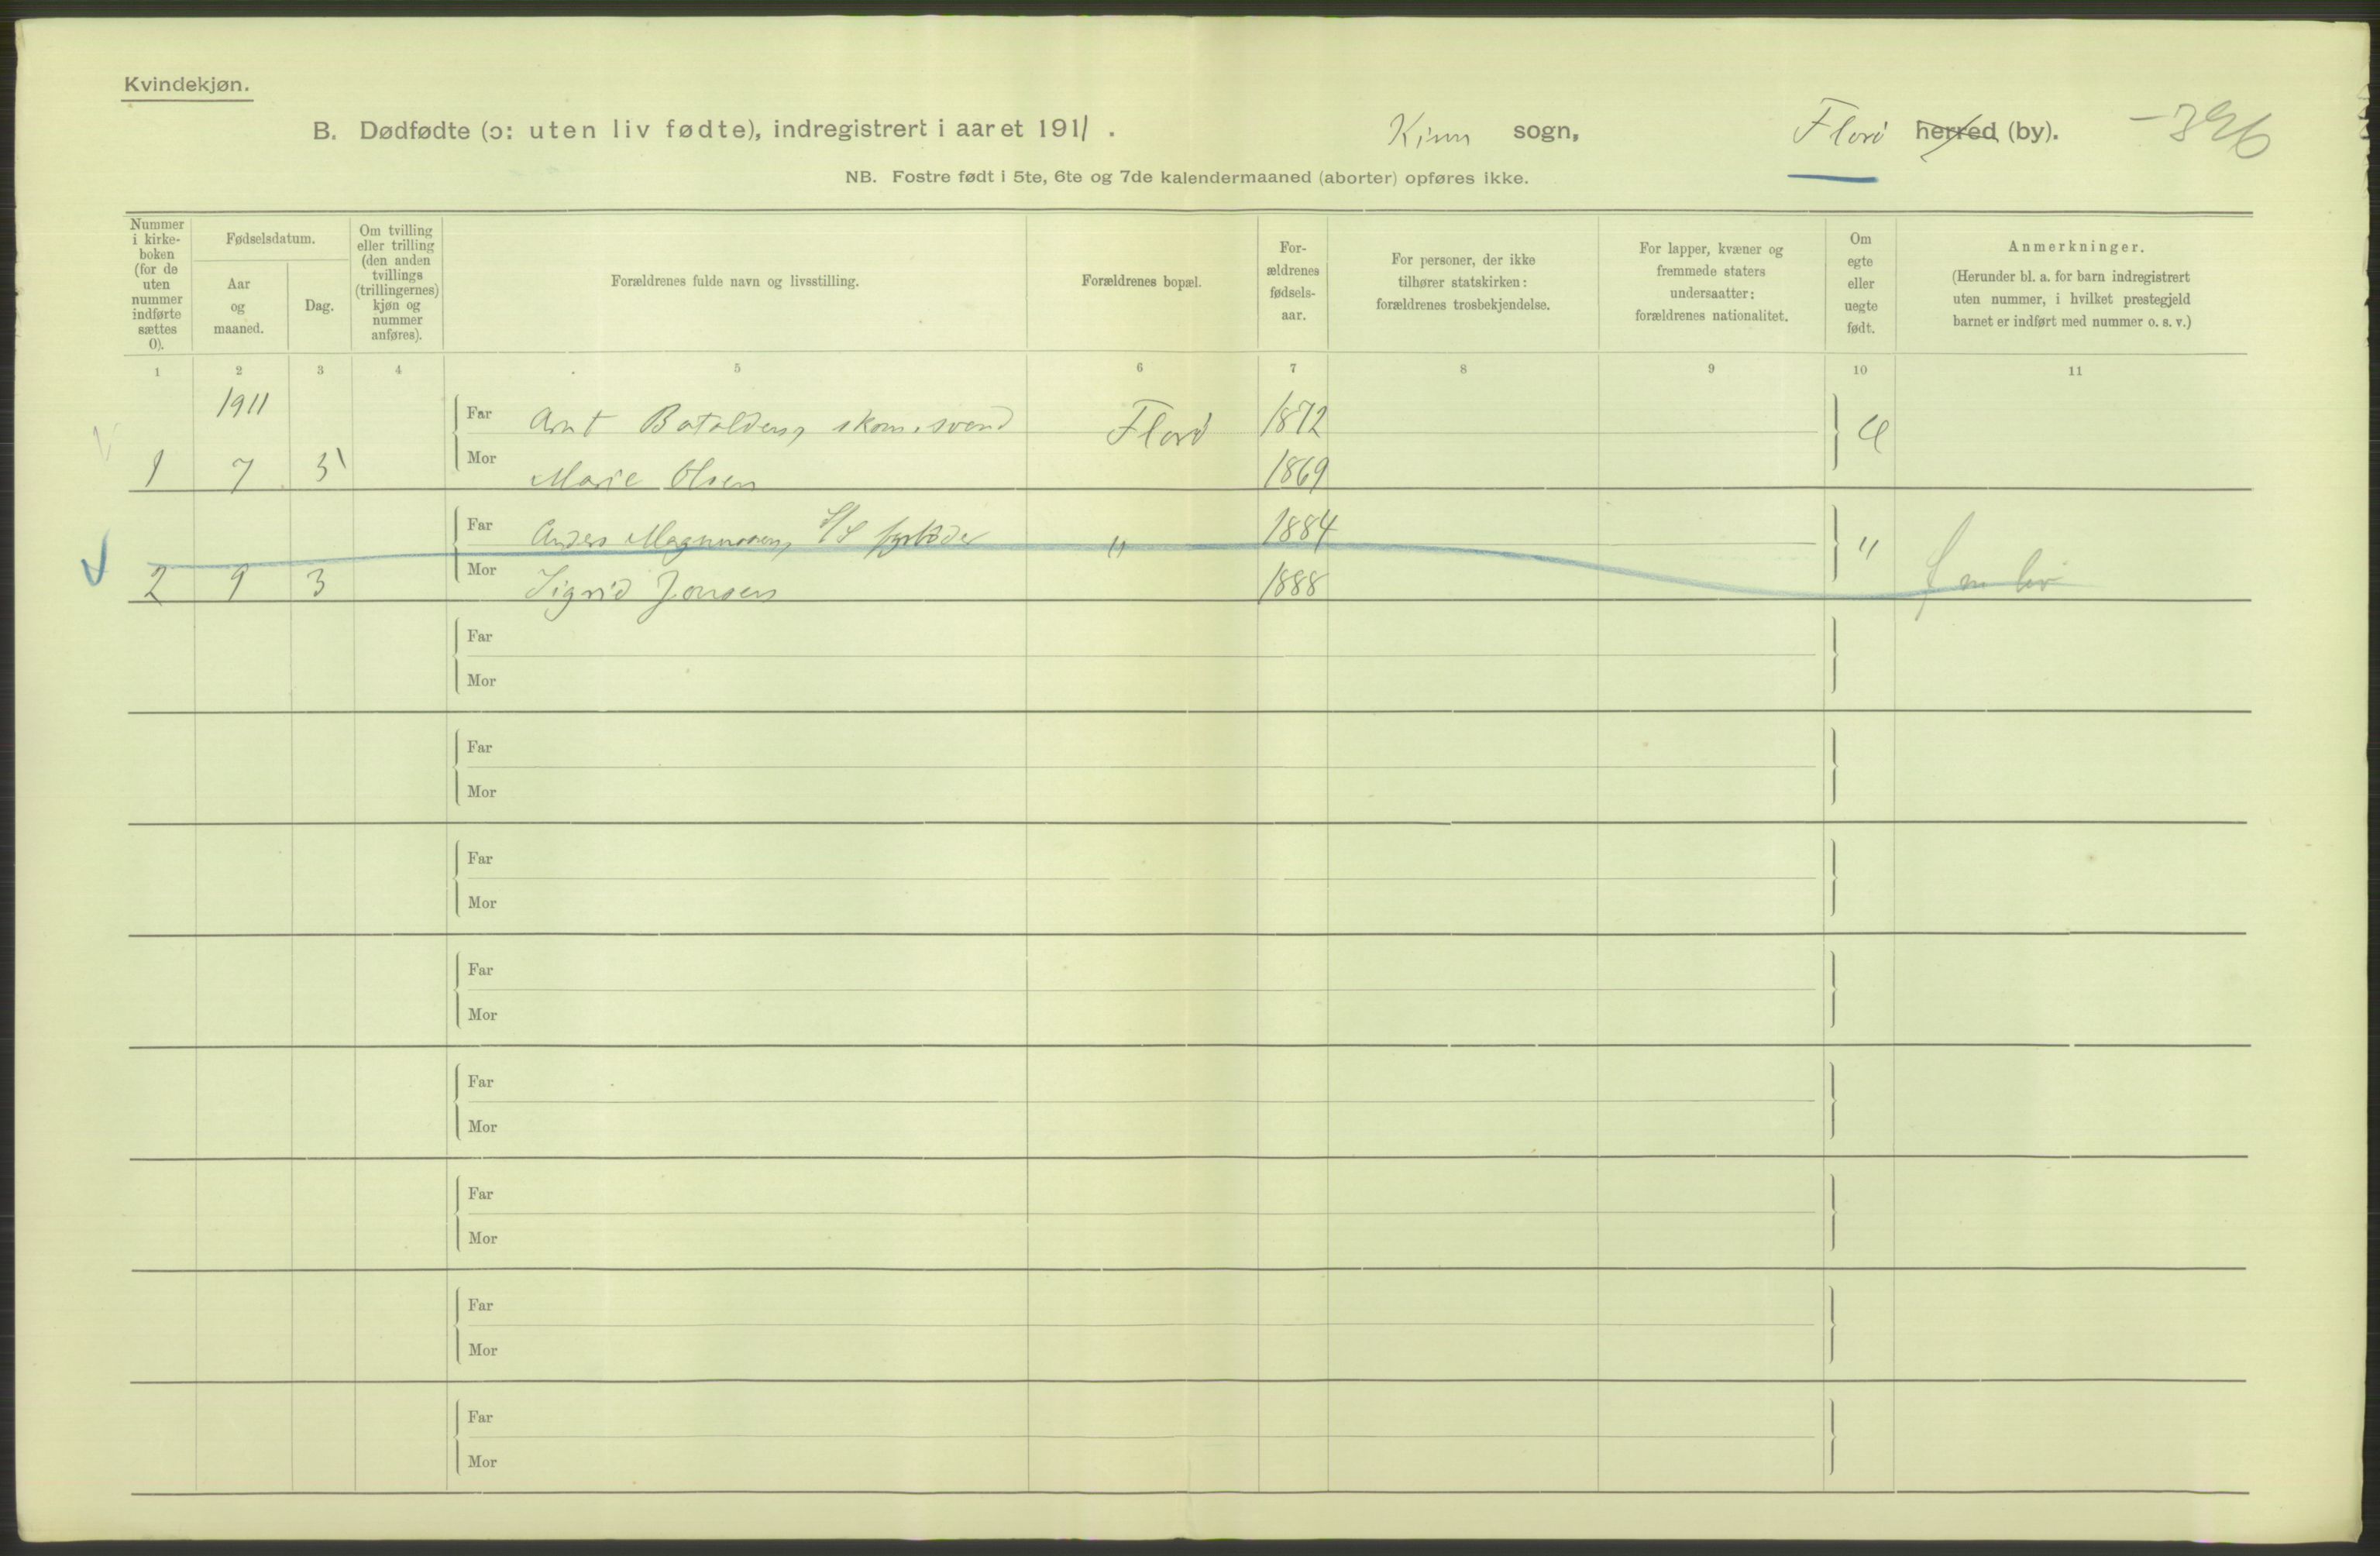 Kvindekjøn.
B. Dødfødte (ɔ: uten liv fødte), indregistrert i aaret 1911.
Kinn sogn,
Florø herred (by).
-396
NB. Fostre født i 5te, 6te og 7de kalendermaaned (aborter) opføres ikke.
Nummer i kirke-boken (for de uten nummer indførte sættes 0).
Fødselsdatum.
Aar og maaned.
Dag.
Om tvilling eller trilling (den anden tvillings (trillingernes) kjøn og nummer anføres).
Forældrenes fulde navn og livsstilling.
Forældrenes bopæl.
For-ældrenes fødsels-aar.
For personer, der ikke tilhører statskirken: forældrenes trosbekjendelse.
For lapper, kvæner og fremmede staters undersaatter: forældrenes nationalitet.
Om egte eller uegte født.
Anmerkninger.
(Herunder bl. a. for barn indregistrert uten nummer, i hvilket prestegjeld barnet er indført med nummer o. s. v.)
1 2 3 4 5 6 7 8 9 10 11
1911
Far Arnt Batalden, skom.svend Florø 1872
1 7 5 Mor Marie Olsen 1869
Far Anders Magnussen, S/S fyrbøder " 1884 "
2 9 3 Mor Sigrid Jonsen 1888
Far
Mor
Far
Mor
Far
Mor
Far
Mor
Far
Mor
Far
Mor
Far
Mor
Far
Mor